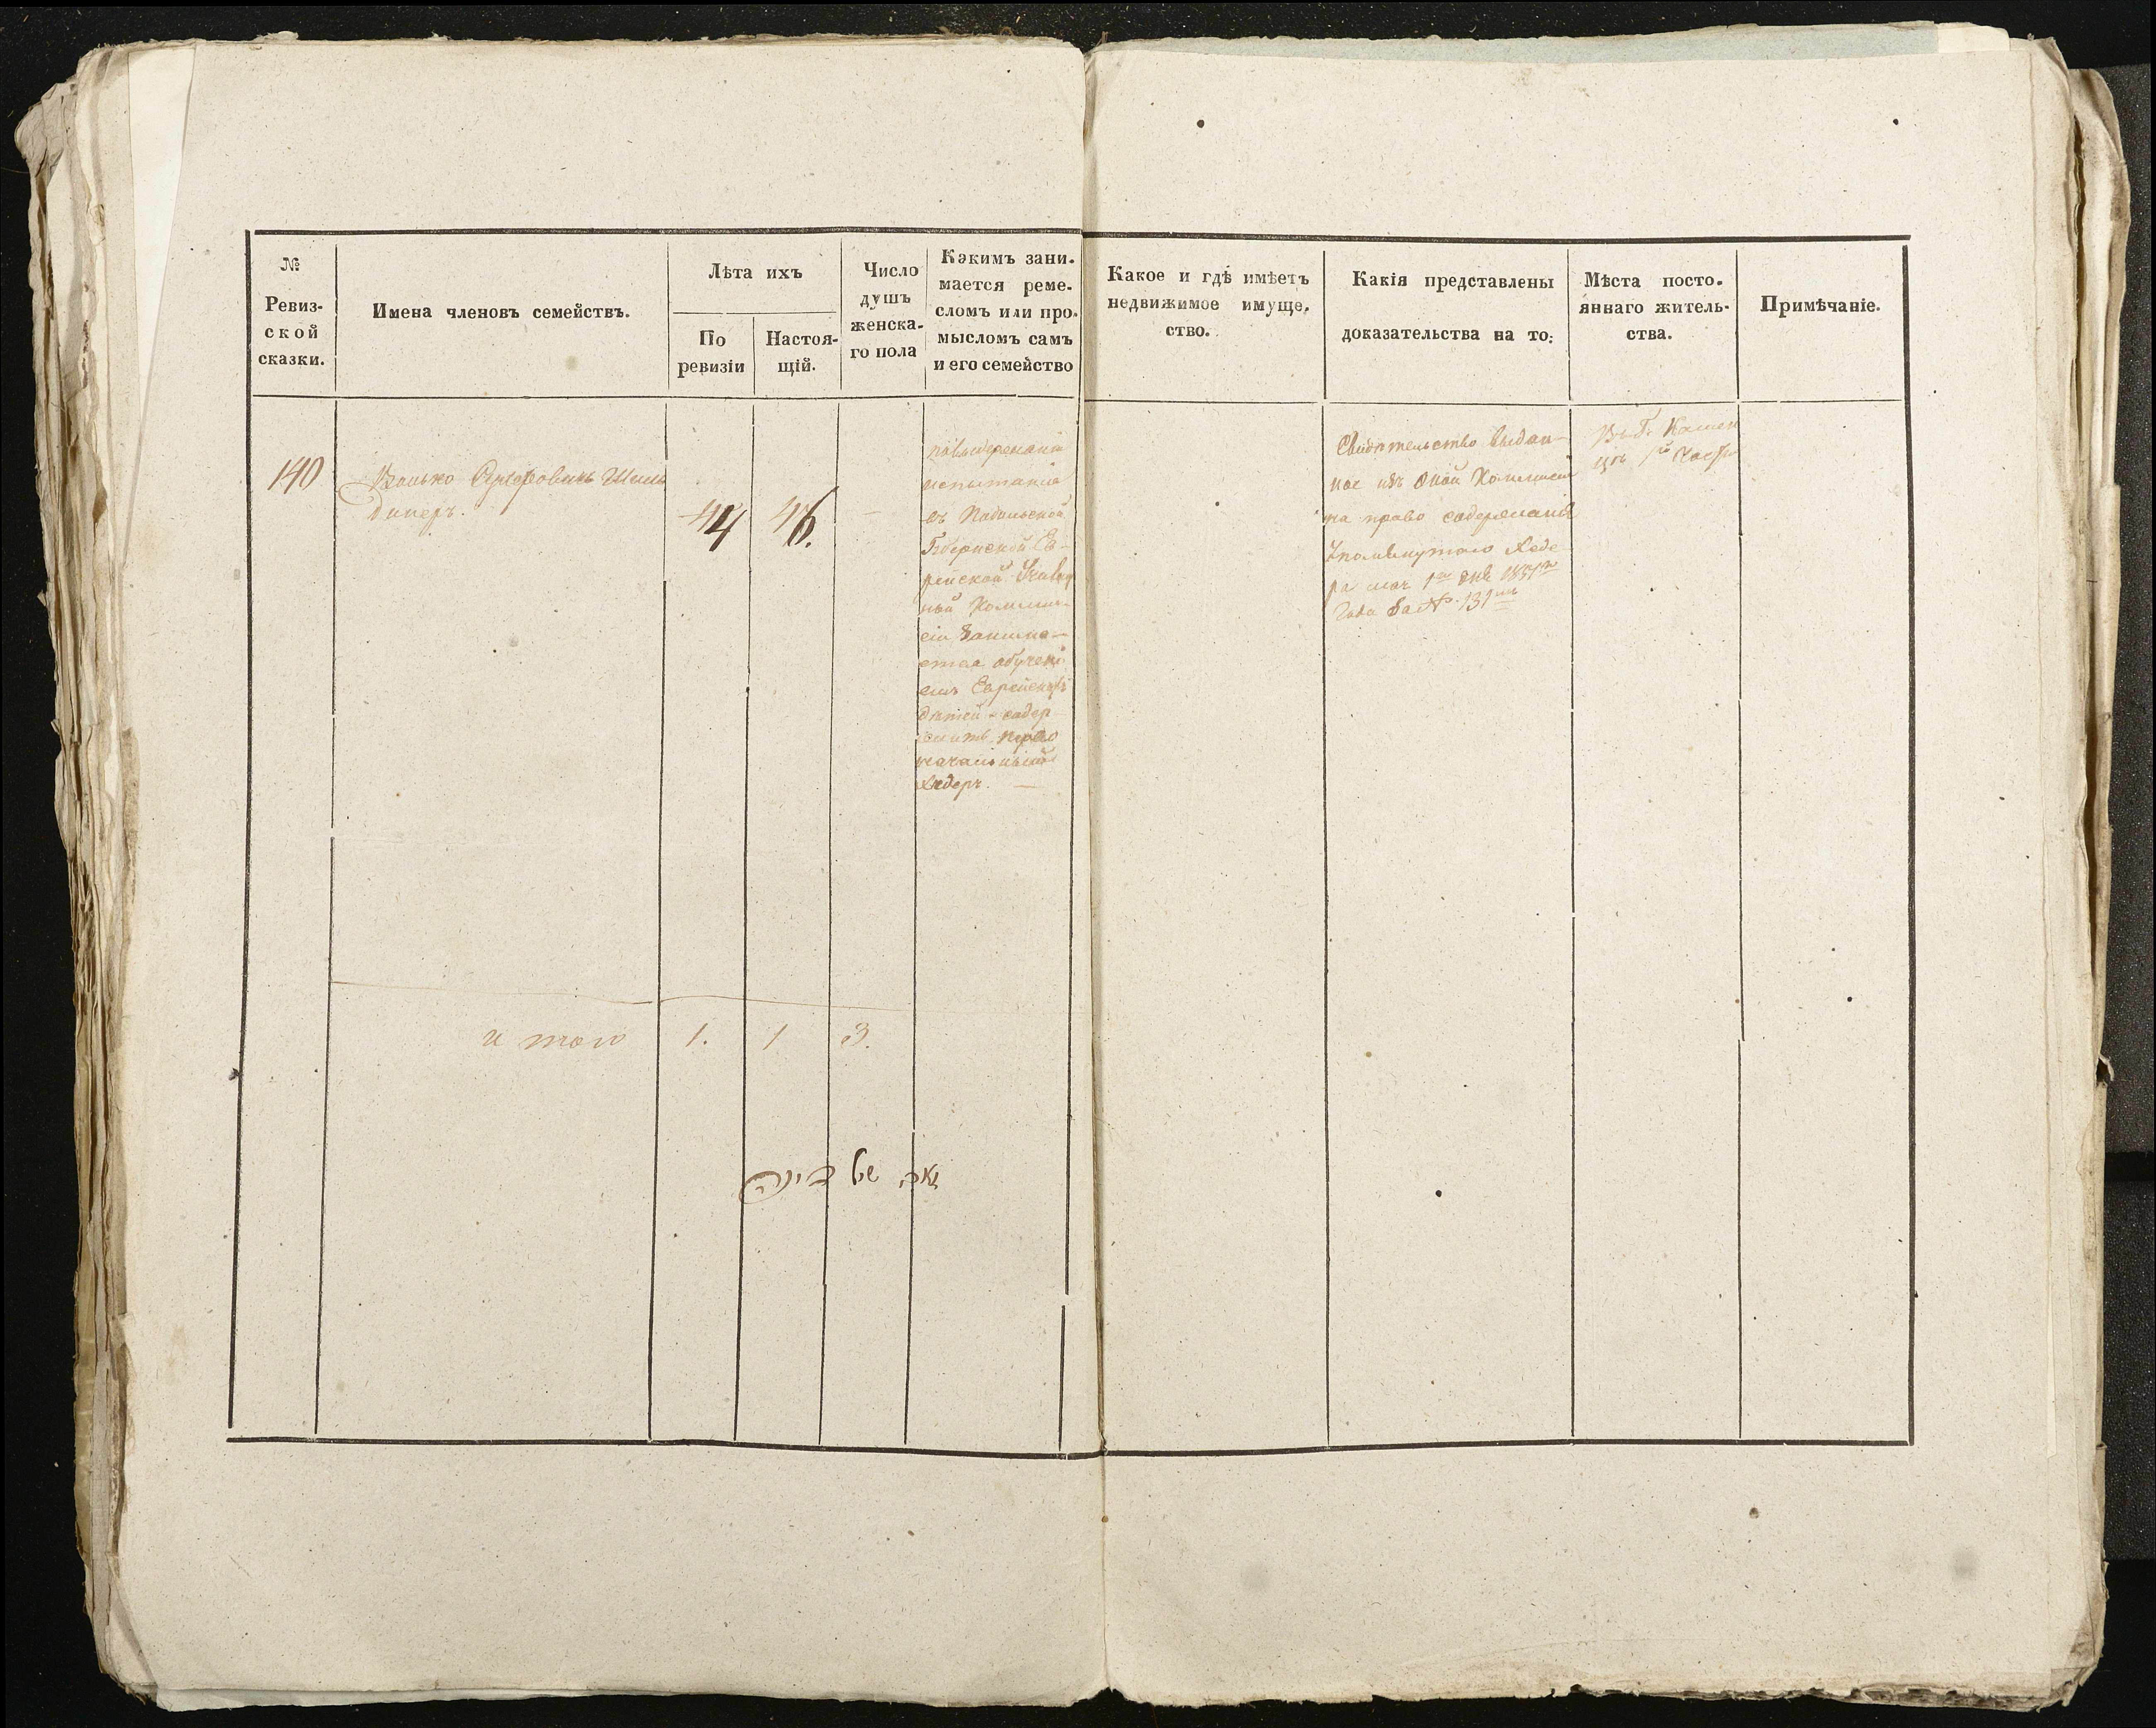 №
Ревиз-
ской
сказки.
Имена членовъ семействъ.
Лѣта ихъ
По
ревизіи
Настоя-
щій.
Число
душъ
женска-
го пола
Какимъ зани-
мается реме-
сломъ или про-
мысломъ самъ
и его семейство
Какое и гдѣ имѣетъ
недвижимое имуще-
ство.
Какія представлены
доказательства на то:
Мѣста посто-
яннаго житель-
ства.
Примѣчаніе.
140
Волько
44
46.
—
испытанія
въ Подольской
Губернской Ев-
рейской
ной Коммис-
сіи Занима-
ется обучені
емъ Еврейскихъ
дѣтей - содер
житъ перво
начальный
Хедеръ. —
Свидѣтельство выдан-
ное изъ оной Коммисіи
на право содержанія
Упомянутаго Хеде
ра
Года за № 131
Въ Г. Камен
цѣ 1й Части
и того 1. 1 3.